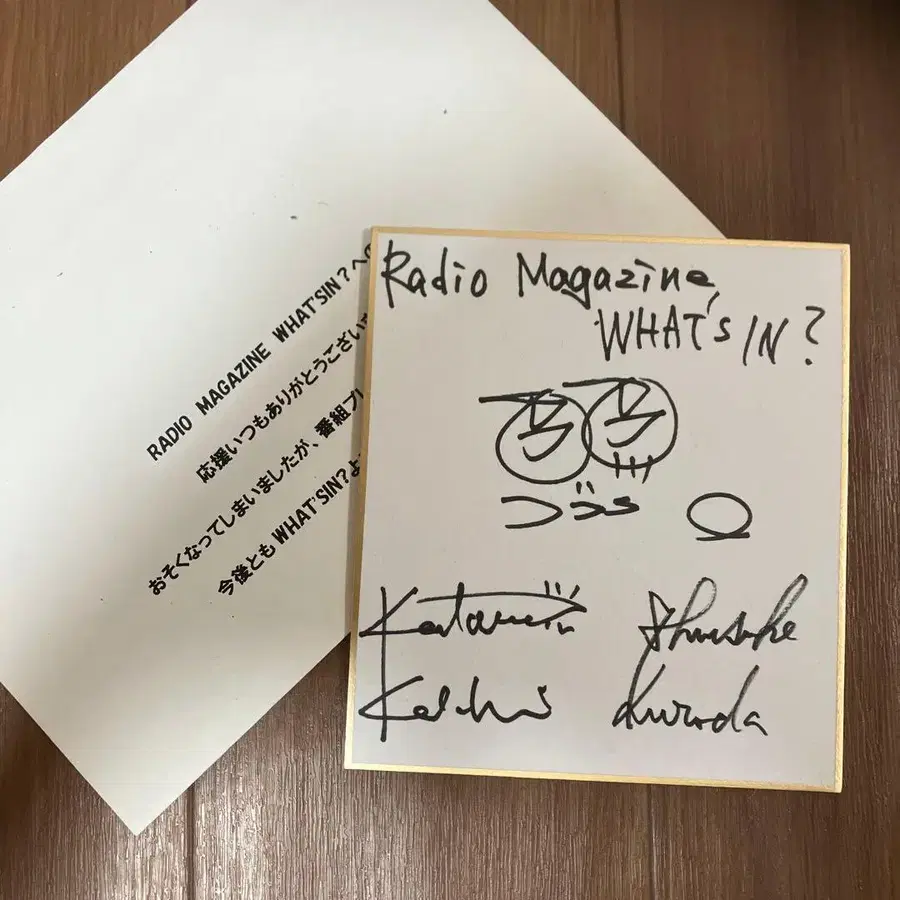 RADIO MAGAZINE WHAT'SIN?への
応援いつもありがとうござい
おそくなってしまいましたが、番組プレ
今後ともWHAT'SIN?よ
Radio Magazine,
WHAT's IN?
コブクロ
Kentarou Shunsuke
Kobuchi Kuroda